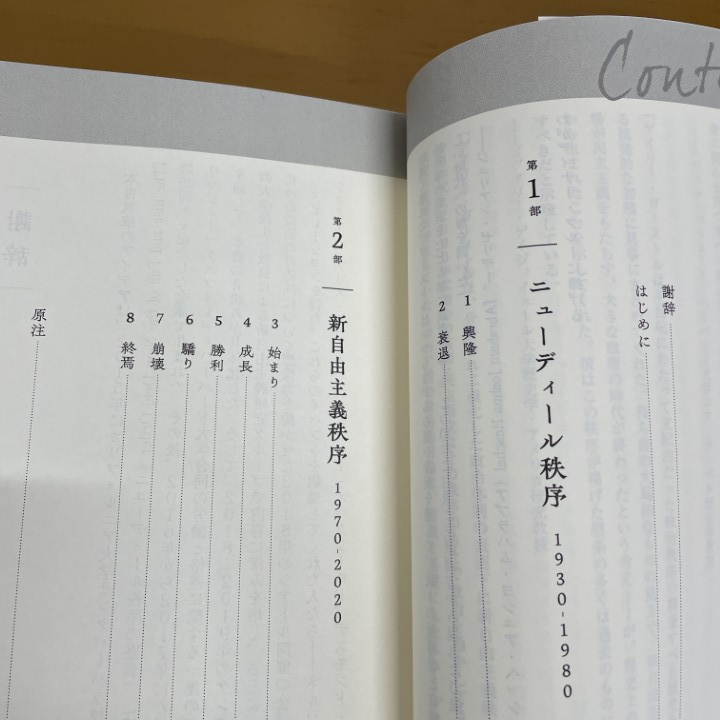 Conte
謝辞
はじめに
第1部 ニューディール秩序 1930-1980
1 興隆
2 衰退
第2部 新自由主義秩序 1970-2020
3 始まり
4 成長
5 勝利
6 驕り
7 崩壊
8 終焉
原注